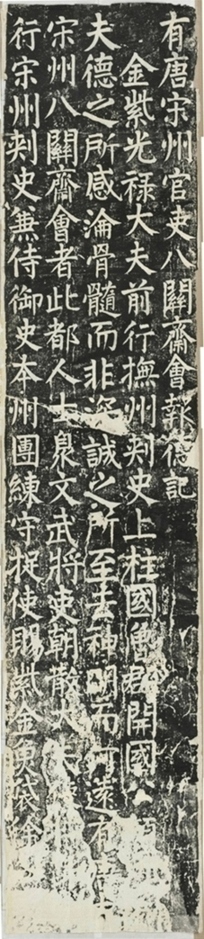 有唐宋州官吏八關齋會報德記
金紫光祿大夫前行撫州刾史上柱國魯郡開國
夫德之所感淪骨髓而非深誠之所至去神明而何遠有
宋州八關齋會者此都人士衆文武將吏朝散大夫
行宋州刾史兼侍御史本州團練守捉使賜紫金魚袋徐